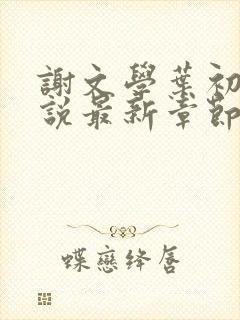 謝文學葉初
說最新章節
蝶戀絳唇